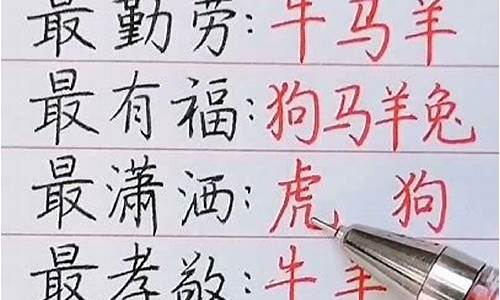 最勤劳:牛马羊
最有福:狗马羊兔
最潇洒:虎、狗
最孝敬:牛羊